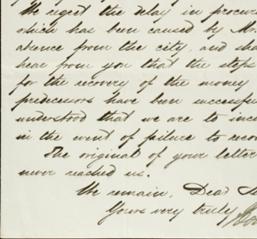 We regret the delay in procur
which has been caused by Mr.
absence from the city, and sha
hear from you that the steps
for the recovery of the money
predecessors have been successfu
understood that we are to inc
in the went of failure to reco
The original of your letter
never reached us.
We remain, Dear
Yours very truly